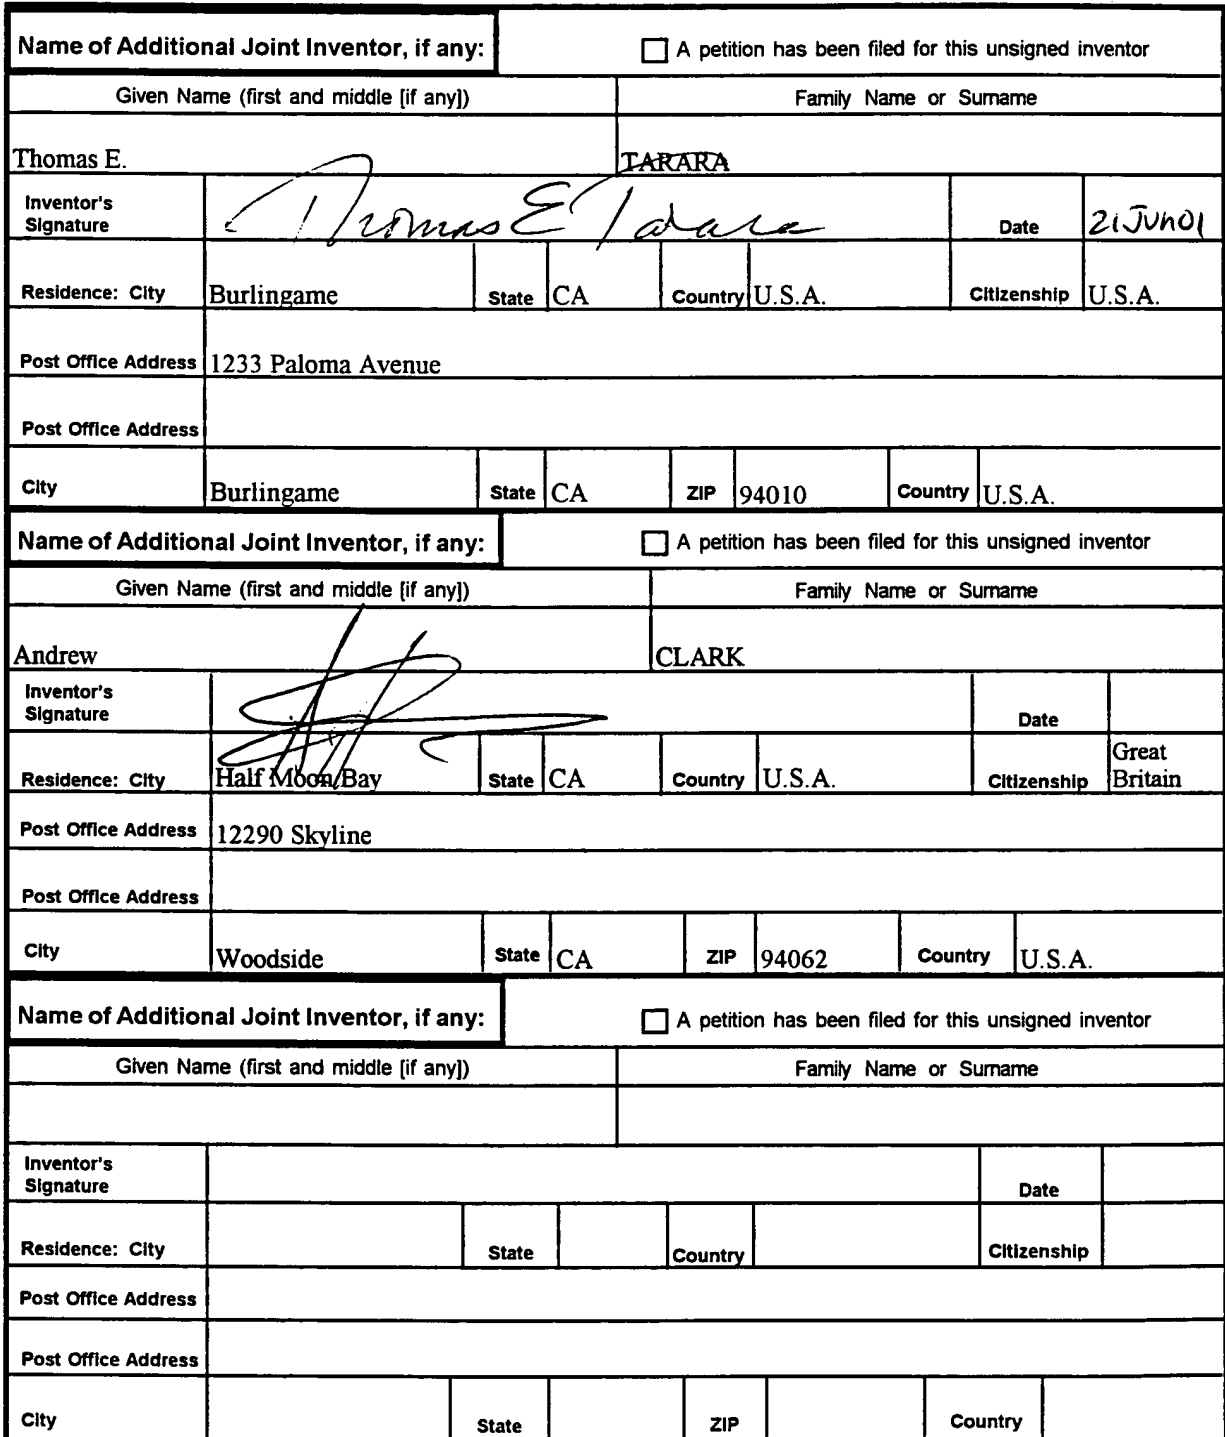 Name of Additional Joint Inventor, if any: A petition has been filed for this unsigned inventor
Given Name (first and middle [if any]) Family Name or Surname
Thomas E. TARARA
Inventor's Signature Thomas E Tarara Date 21 JUN 01
Residence: City Burlingame State CA Country U.S.A. Citizenship U.S.A.
Post Office Address 1233 Paloma Avenue
Post Office Address
City Burlingame State CA ZIP 94010 Country U.S.A.
Name of Additional Joint Inventor, if any: A petition has been filed for this unsigned inventor
Given Name (first and middle [if any]) Family Name or Surname
Andrew CLARK
Inventor's Signature Date
Residence: City Half Moon Bay State CA Country U.S.A. Citizenship Great Britain
Post Office Address 12290 Skyline
Post Office Address
City Woodside State CA ZIP 94062 Country U.S.A.
Name of Additional Joint Inventor, if any: A petition has been filed for this unsigned inventor
Given Name (first and middle [if any]) Family Name or Surname
Inventor's Signature Date
Residence: City State Country Citizenship
Post Office Address
Post Office Address
City State ZIP Country